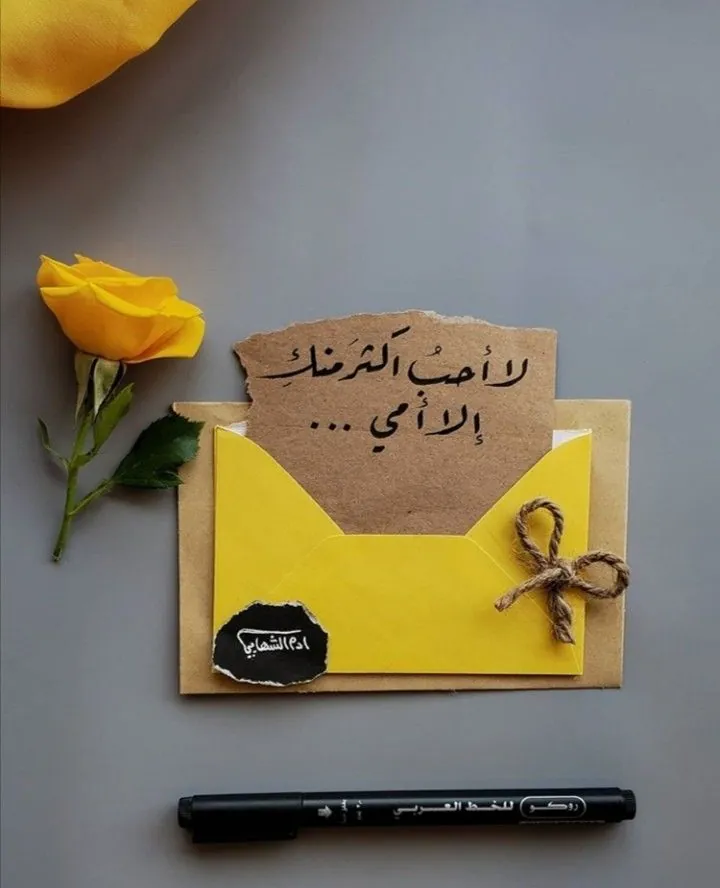 لا أحبُ اكثرَ منكِ
إلا أمي ...
ادم الشهابي
روكو للخط العربي